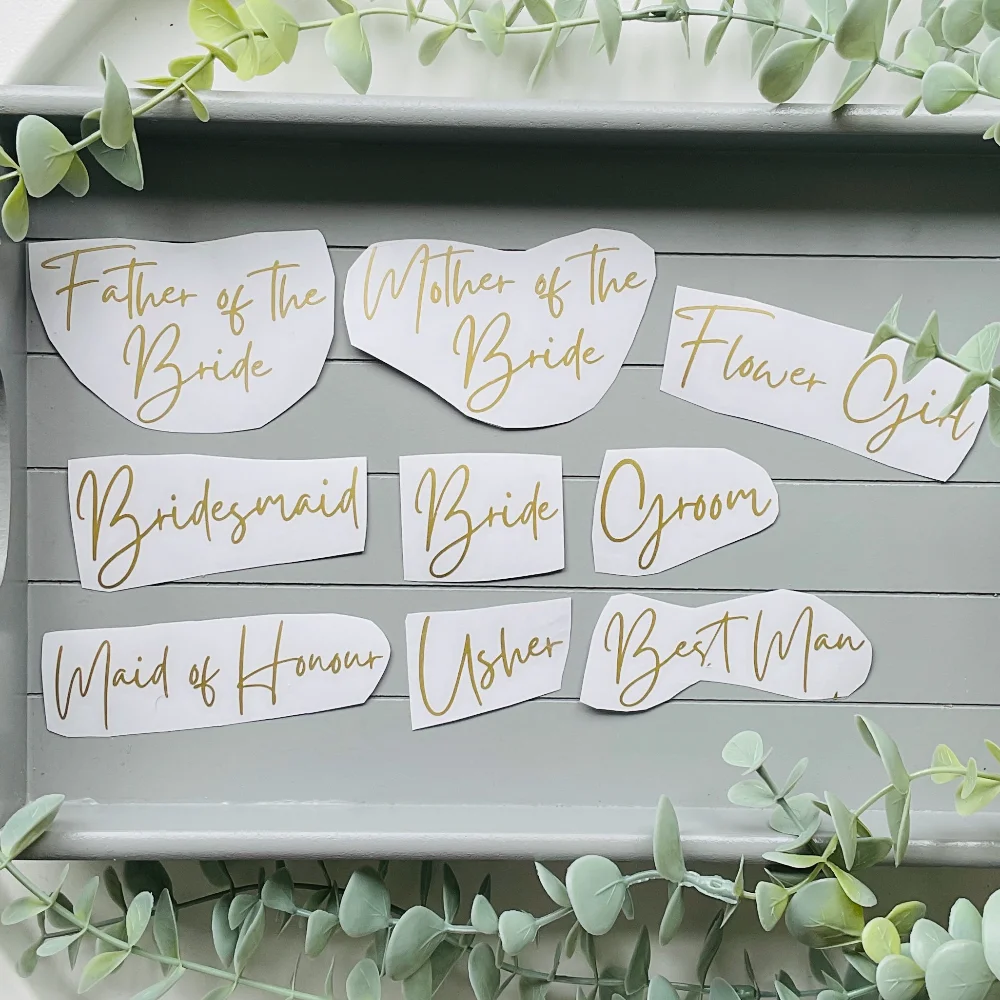 Father of the
Bride
Mother of the
Bride
Flower Girl
Bridesmaid
Bride
Groom
Maid of Honour
Usher
Best Man